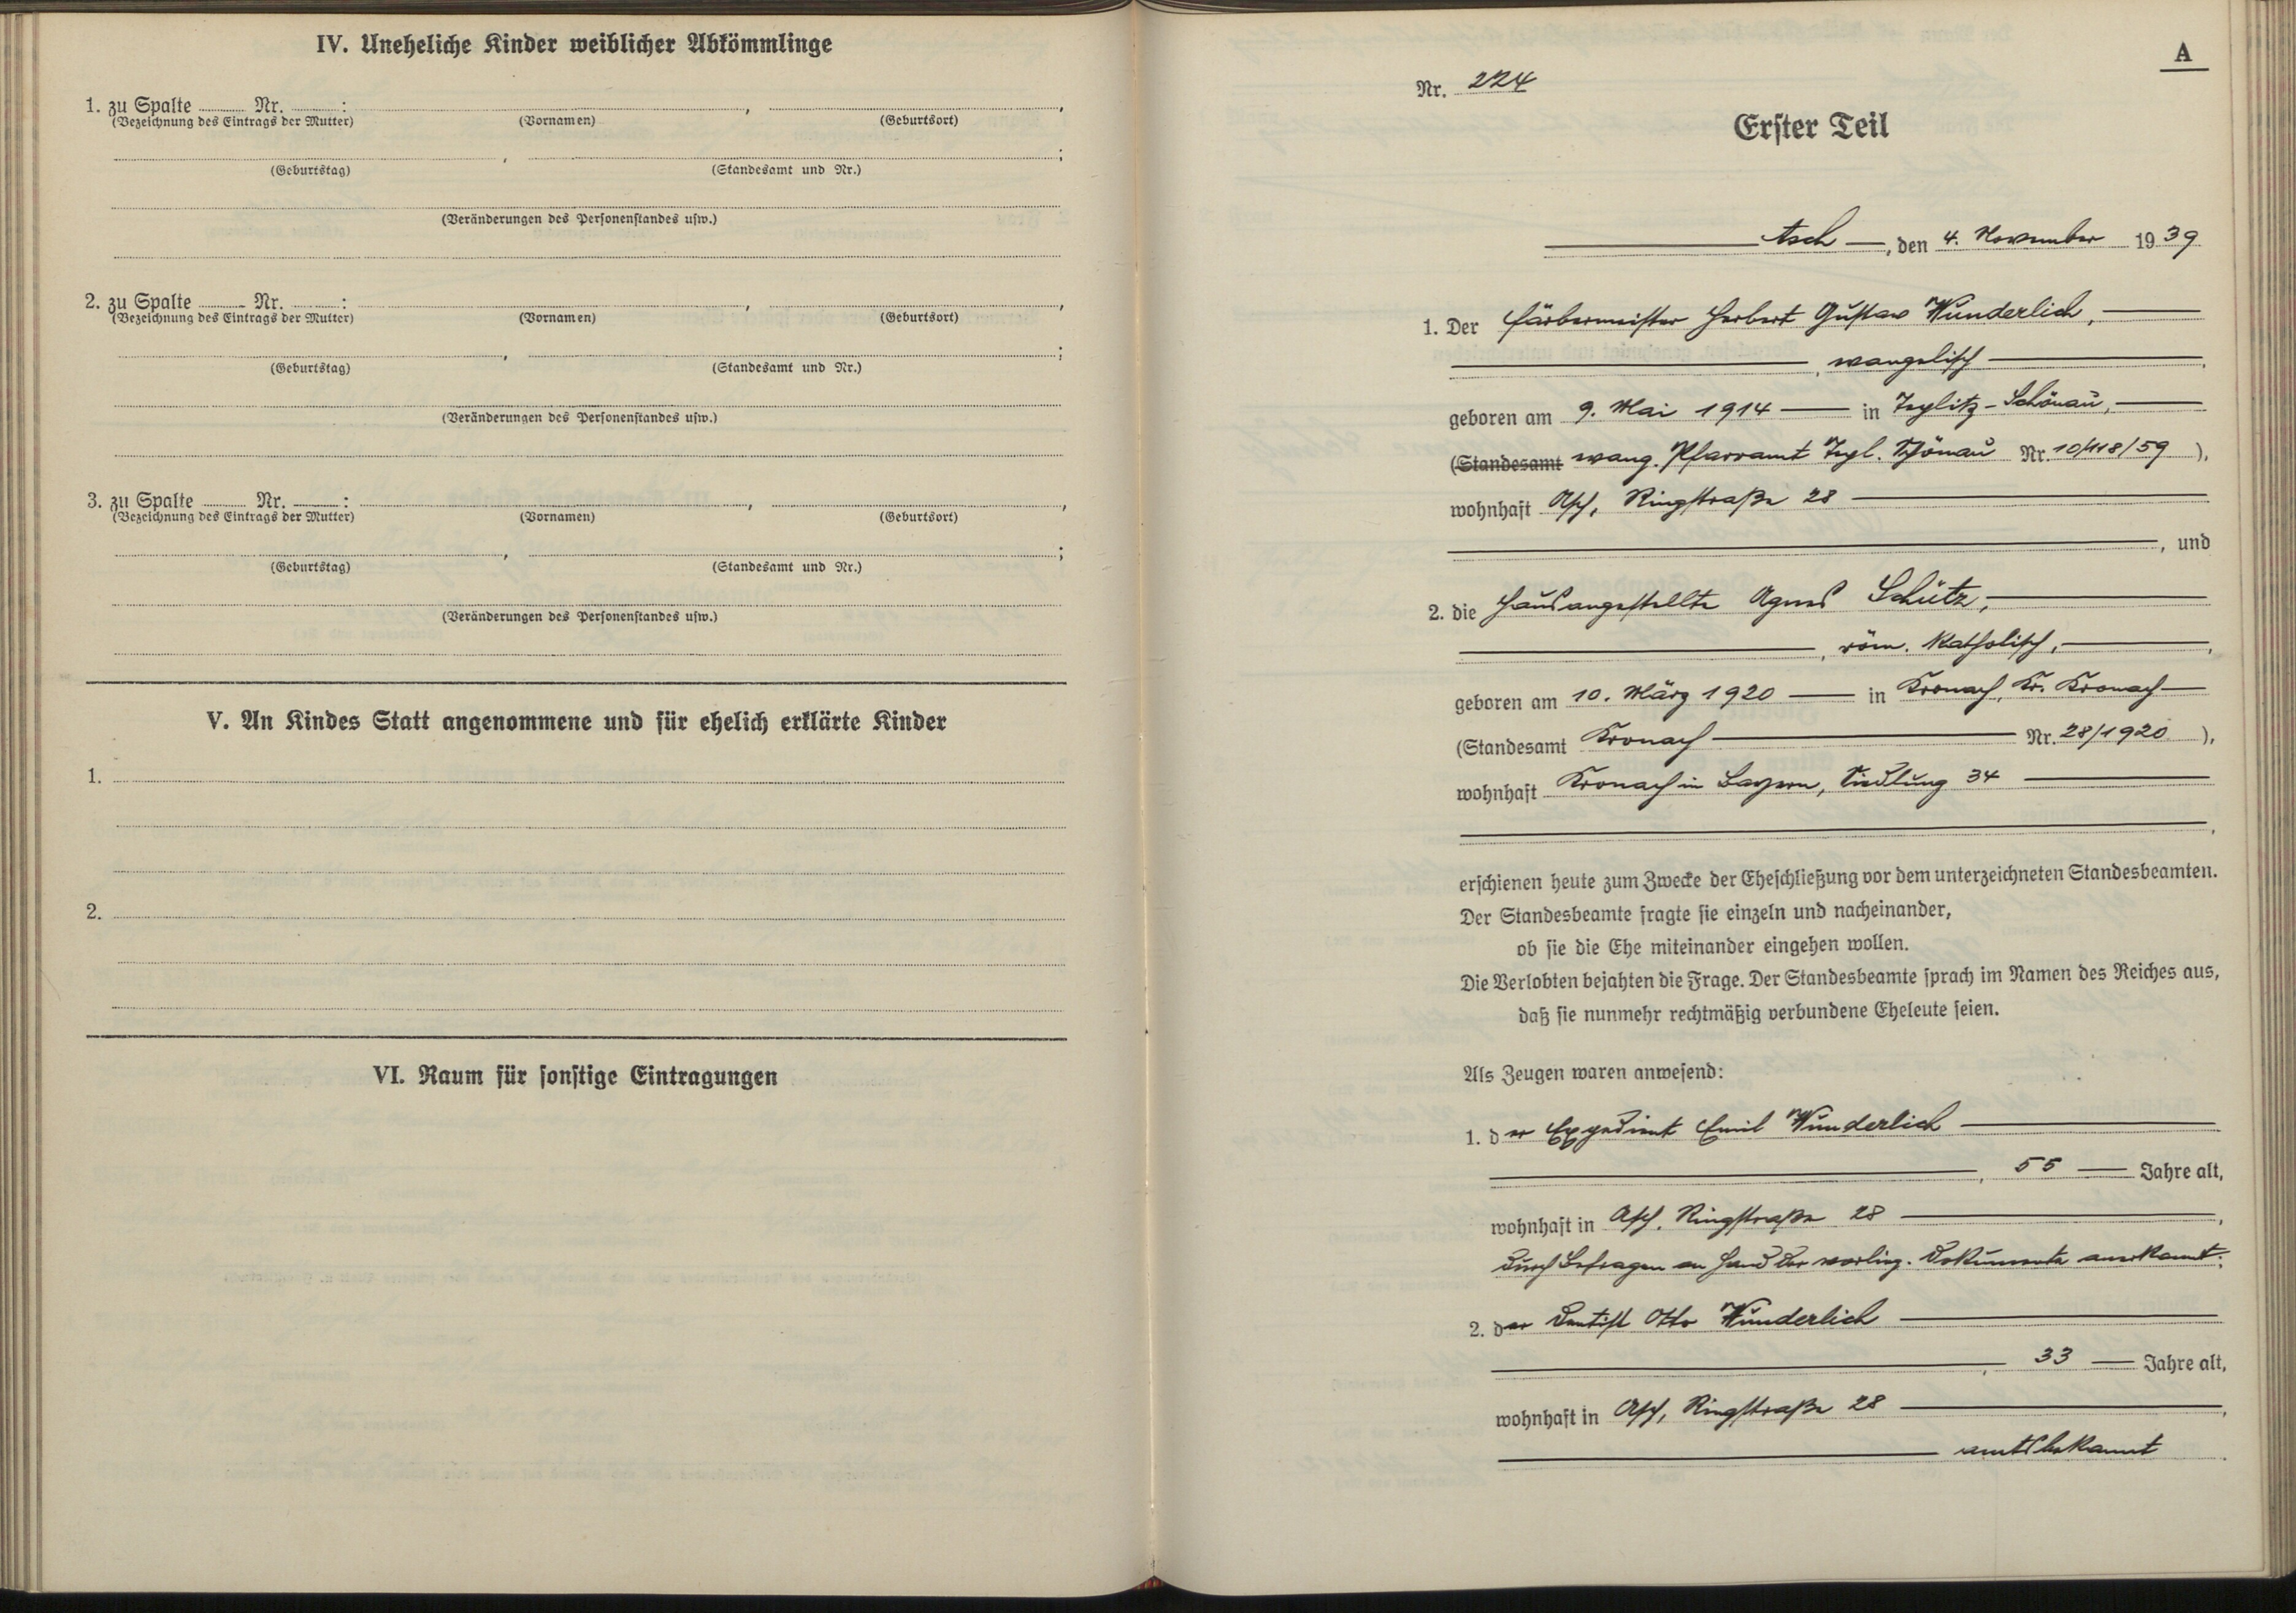 IV. Uneheliche Kinder weiblicher Abkömmlinge
1. zu Spalte ........ Nr. ........ : , ,
(Bezeichnung des Eintrags der Mutter) (Vornamen) (Geburtsort)
, ;
(Geburtstag) (Standesamt und Nr.)
(Veränderungen des Personenstandes usw.)
2. zu Spalte ........ Nr. ........ : , ,
(Bezeichnung des Eintrags der Mutter) (Vornamen) (Geburtsort)
, ;
(Geburtstag) (Standesamt und Nr.)
(Veränderungen des Personenstandes usw.)
3. zu Spalte ........ Nr. ........ : , ,
(Bezeichnung des Eintrags der Mutter) (Vornamen) (Geburtsort)
, ;
(Geburtstag) (Standesamt und Nr.)
(Veränderungen des Personenstandes usw.)
V. An Kindes Statt angenommene und für ehelich erklärte Kinder
1.
2.
VI. Raum für sonstige Eintragungen
A
Nr. 224
Erster Teil
Asch, den 4. November 1939
1. Der Färbermeister Herbert Gustav Wunderlich,
, evangelisch,
geboren am 9. Mai 1914 in Teplitz-Schönau,
(Standesamt evang. Pfarramt Tepl. Schönau Nr. 10/118/59 ),
wohnhaft Asch, Ringstraße 28
, und
2. die Hausangestellte Agnes Schütz,
, röm. katholisch,
geboren am 10. März 1920 in Kronach, Kr. Kronach
(Standesamt Kronach Nr. 28/1920 ),
wohnhaft Kronach in Bayern, Siedlung 34
,
erschienen heute zum Zwecke der Eheschließung vor dem unterzeichneten Standesbeamten.
Der Standesbeamte fragte sie einzeln und nacheinander,
ob sie die Ehe miteinander eingehen wollen.
Die Verlobten bejahten die Frage. Der Standesbeamte sprach im Namen des Reiches aus,
daß sie nunmehr rechtmäßig verbundene Eheleute seien.
Als Zeugen waren anwesend:
1. der Expedient Emil Wunderlich
, 55 Jahre alt,
wohnhaft in Asch, Ringstraße 28,
durch Befragen an Hand der vorlieg. Dokumente anerkannt;
2. der Dentist Otto Wunderlich
, 33 Jahre alt,
wohnhaft in Asch, Ringstraße 28,
amtsbekannt.